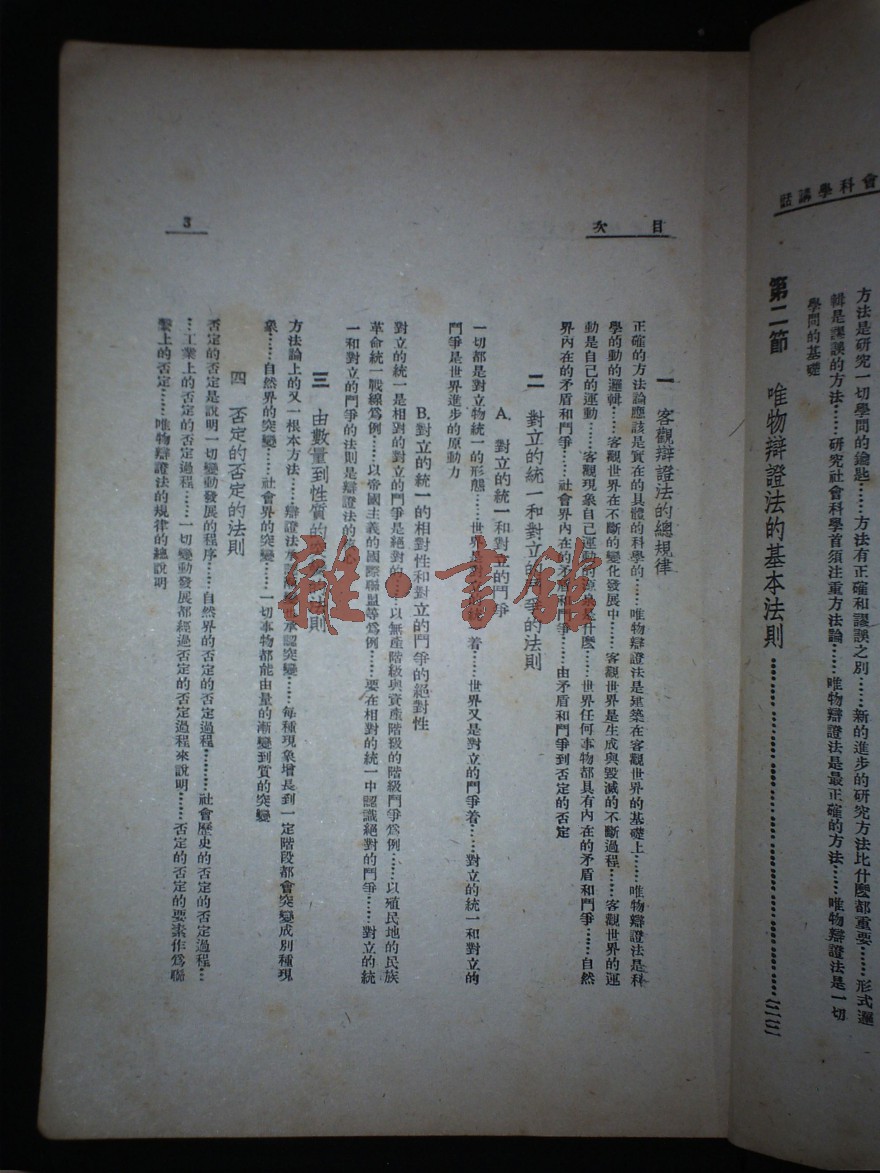 會科學講話
方法是研究一切學問的鑰匙……方法有正確和謬誤之別……新的進步的研究方法比什麼都重要……形式邏
輯是謬誤的方法……研究社會科學首須注重方法論……唯物辯證法是最正確的方法……唯物辯證法是一切
學問的基礎
第二節 唯物辯證法的基本法則
目次
3
一 客觀辯證法的總規律
正確的方法論應該是實在的具體的科學的……唯物辯證法是建築在客觀世界的基礎上……唯物辯證法是科
學的動的邏輯……客觀世界在不斷的變化發展中……客觀世界是生成與毀滅的不斷過程……客觀世界的運
動是自己的運動……客觀現象自己運動的什麼……世界任何事物都具有內在的矛盾和鬥爭……自然
界內在的矛盾和鬥爭……社會界內在的矛盾和鬥爭……由矛盾和鬥爭到否定的否定
二 對立的統一和對立的鬥爭的法則
A. 對立的統一和對立的鬥爭
一切都是對立物統一的形態……世界是對立的着……世界又是對立的鬥爭着……對立的統一和對立的
鬥爭是世界進步的原動力
B. 對立的統一的相對性和對立的鬥爭的絕對性
對立的統一是相對的對立的鬥爭是絕對的以無產階級與資產階級的階級鬥爭爲例……以殖民地的民族
革命統一戰線爲例……以帝國主義的國際聯盟等爲例……要在相對的統一中認識絕對的鬥爭……對立的統
一和對立的鬥爭的法則是辯證法的
三 由數量到性質的法則
方法論上的又一根本方法……辯證法承認突變……每種現象增長到一定階段都會突變成別種現
象……自然界的突變……社會界的突變……一切事物都能由量的漸變到質的突變
四 否定的否定的法則
否定的否定是說明一切變動發展的程序……自然界的否定的否定過程……社會歷史的否定的否定過程…
…工業上的否定的否定過程……一切變動發展都經過否定的否定過程來說明……否定的否定的要素作爲聯
繫上的否定……唯物辯證法的規律的總說明
雜·書館